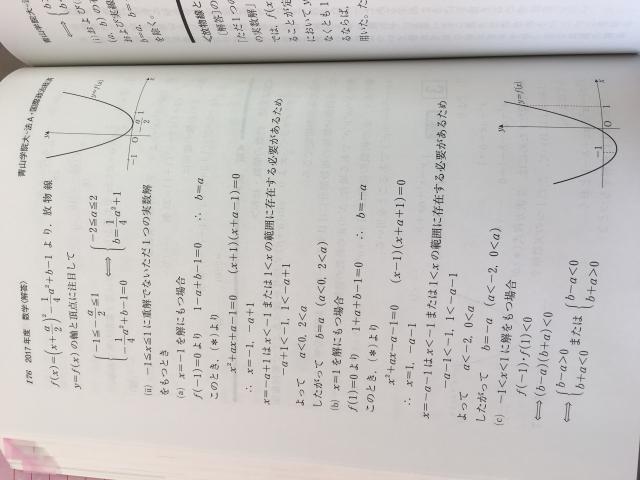 176 2017年度 数学〈解答〉
青山学院大-法A・国際政治経済
f(x)=(x+a/2)²-1/4a²+b-1 より，放物線
y=f(x)の軸と頂点に注目して
{-1≦-a/2≦1 -1/4a²+b-1=0 ⟺ {-2≦a≦2 b=1/4a²+1
y
y=f(x)
-1 O -a/2 1 x
(ii) -1≦x≦1に重解でないただ1つの実数解
をもつとき
(a) x=-1を解にもつ場合
f(-1)=0より 1-a+b-1=0 ∴ b=a
このとき，(*)より
x²+ax+a-1=0 (x+1)(x+a-1)=0
∴ x=-1, -a+1
x=-a+1はx<-1または1<xの範囲に存在する必要があるため
-a+1<-1, 1<-a+1
よって a<0, 2<a
したがって b=a (a<0, 2<a)
(b) x=1を解にもつ場合
f(1)=0より 1+a+b-1=0 ∴ b=-a
このとき，(*)より
x²+ax-a-1=0 (x-1)(x+a+1)=0
∴ x=1, -a-1
x=-a-1はx<-1または1<xの範囲に存在する必要があるため
-a-1<-1, 1<-a-1
よって a<-2, 0<a
したがって b=-a (a<-2, 0<a)
(c) -1<x<1に解をもつ場合
f(-1)・f(1)<0
⟺(b-a)(b+a)<0
⟺{b-a>0 b+a<0 または {b-a<0 b+a>0
y
y=f(x)
-1 O 1 x
青山学院大-法
(ii)
および
を除く。
〔解答〕の
「ただ1つの
の実数解」
では，f(x
ることが定
においてy
なくとも1
るならば，
用いた。た